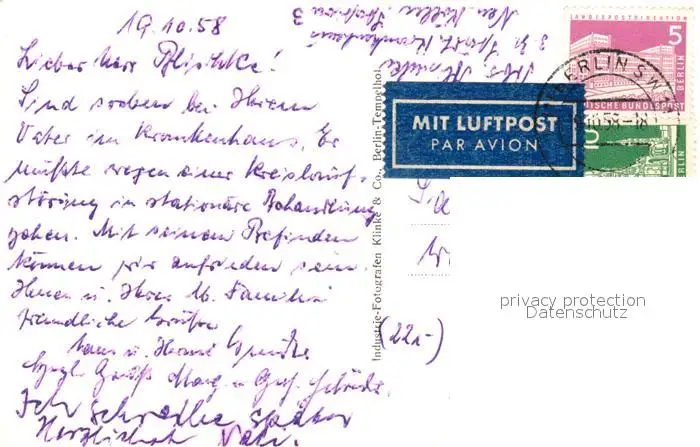 19.10.58
Lieber Herr
Sind soeben bei Ihrem
Vater im Krankenhaus. Er
mußte wegen einer Kreislauf-
störung in stationäre Behandlung
gehen. Mit seinem Befinden
können wir zufrieden sein.
Ihnen u. Ihrer lb. Familie
freundliche Grüße
Hans u. Hermi
Herzl. Grüße u.
Ich schreibe später
Herzlichst Vater.
Neu Kölln
Industrie-Fotografen Klinke & Co., Berlin-Tempelhof
MIT LUFTPOST
PAR AVION
LANDESPOSTDIREKTION
5
BERLIN
DEUTSCHE BUNDESPOST
BERLIN SW
10
BERLIN
(22a)
privacy protection
Datenschutz